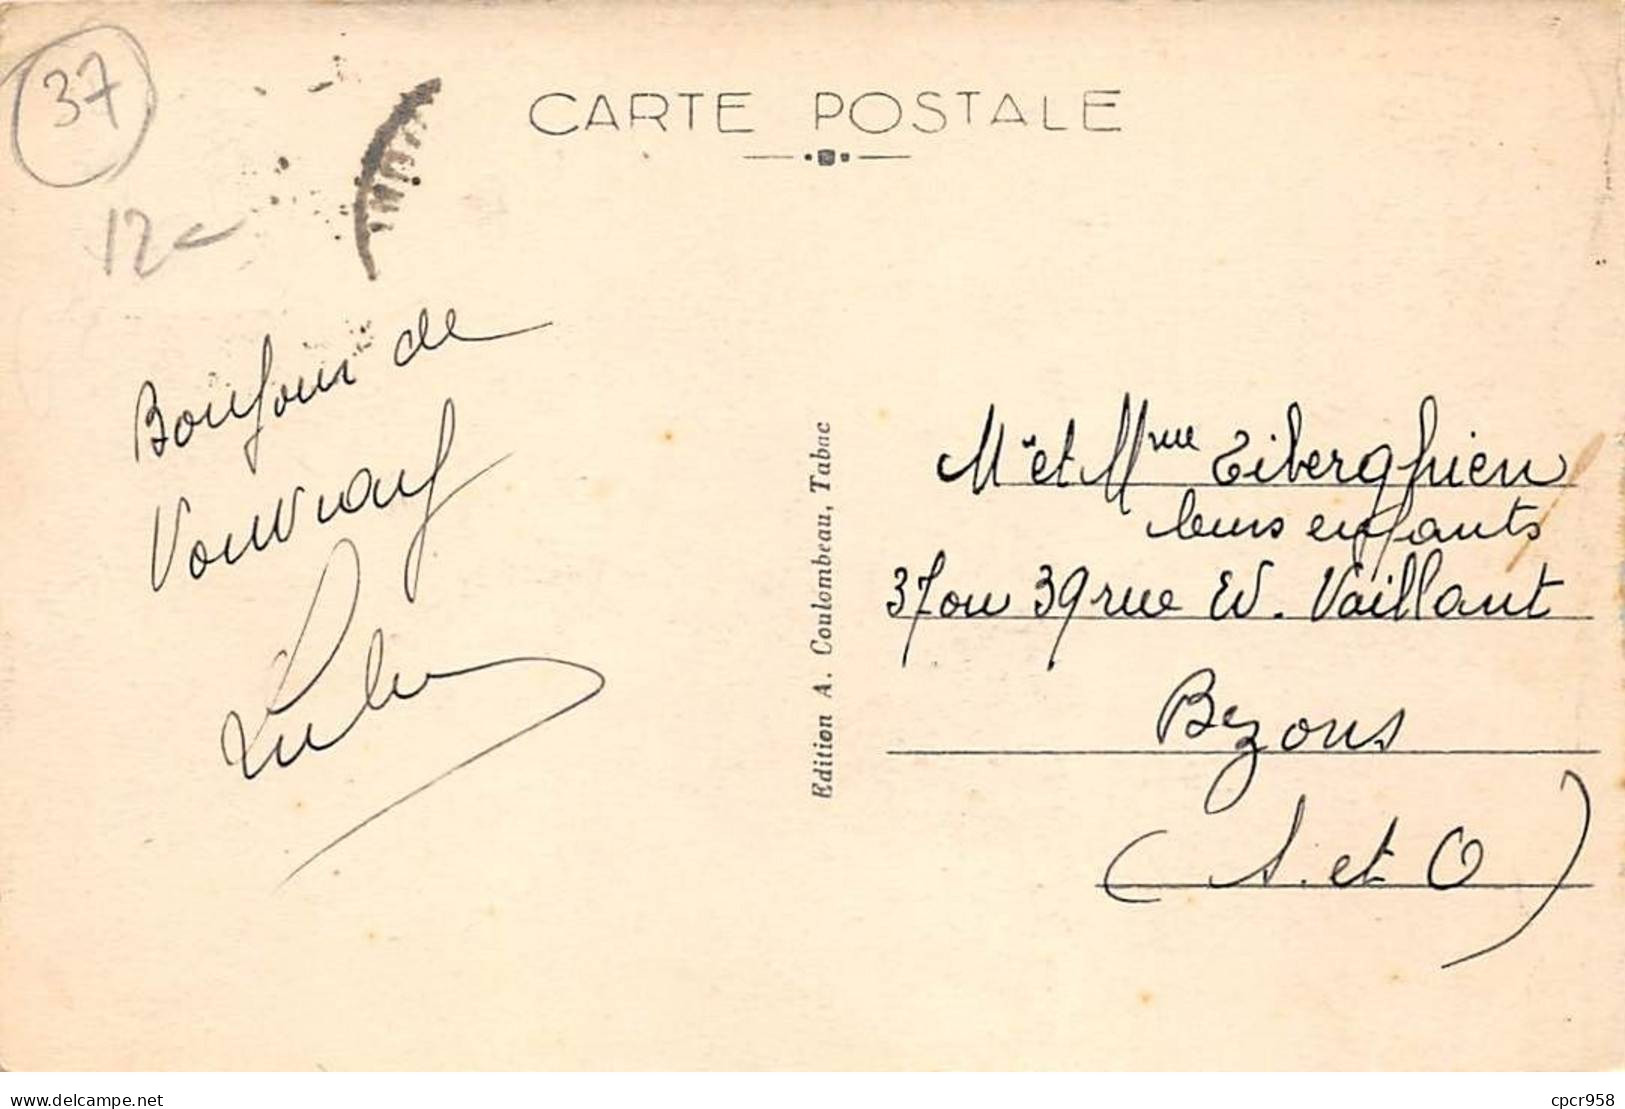 37
CARTE POSTALE
12€
Bonjour de
Vouvray
Edition A. Coulombeau, Tabac
Mr et Mme Tiberghien
leurs enfants
37 ou 39 rue Ed. Vaillant
Bezons
(S. et O)
delcampe.net
cpcr958